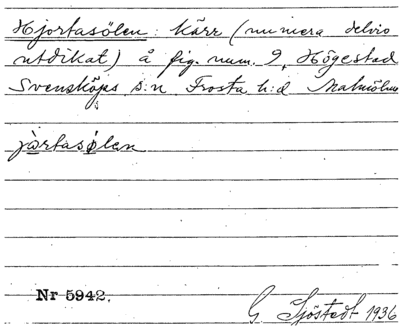 Hjortasölen: kärr (numera delvis
utdikat) å fig. num. 9, Högestad
Svensköps s:n. Frosta h:d Malmöhus
jὰrtasølen
Nr 5942.
G Sjöstedt 1936